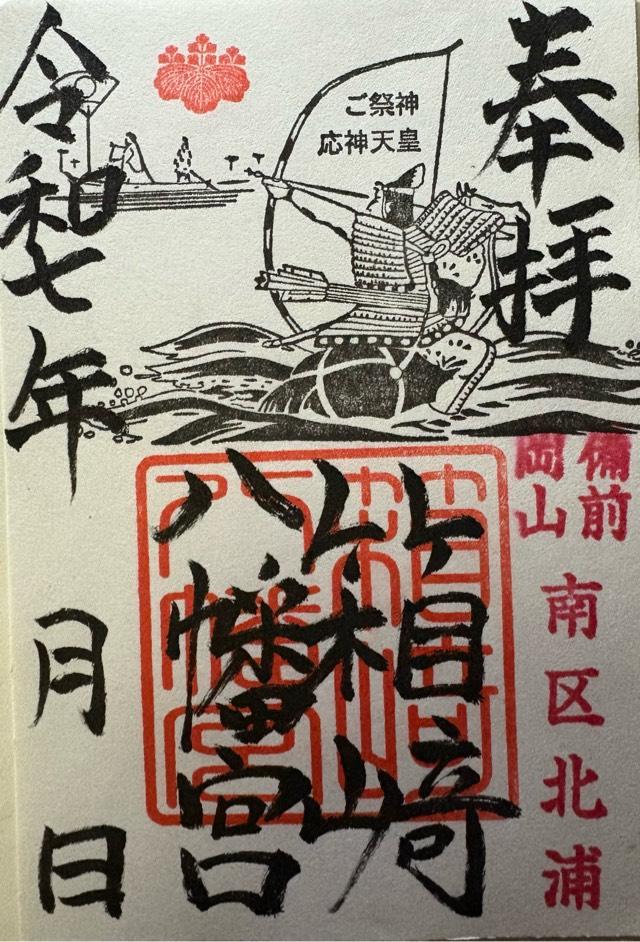 奉拝
備前
岡山
南区北浦
ご祭神
応神天皇
箱崎
八幡宮
令和七年 月 日